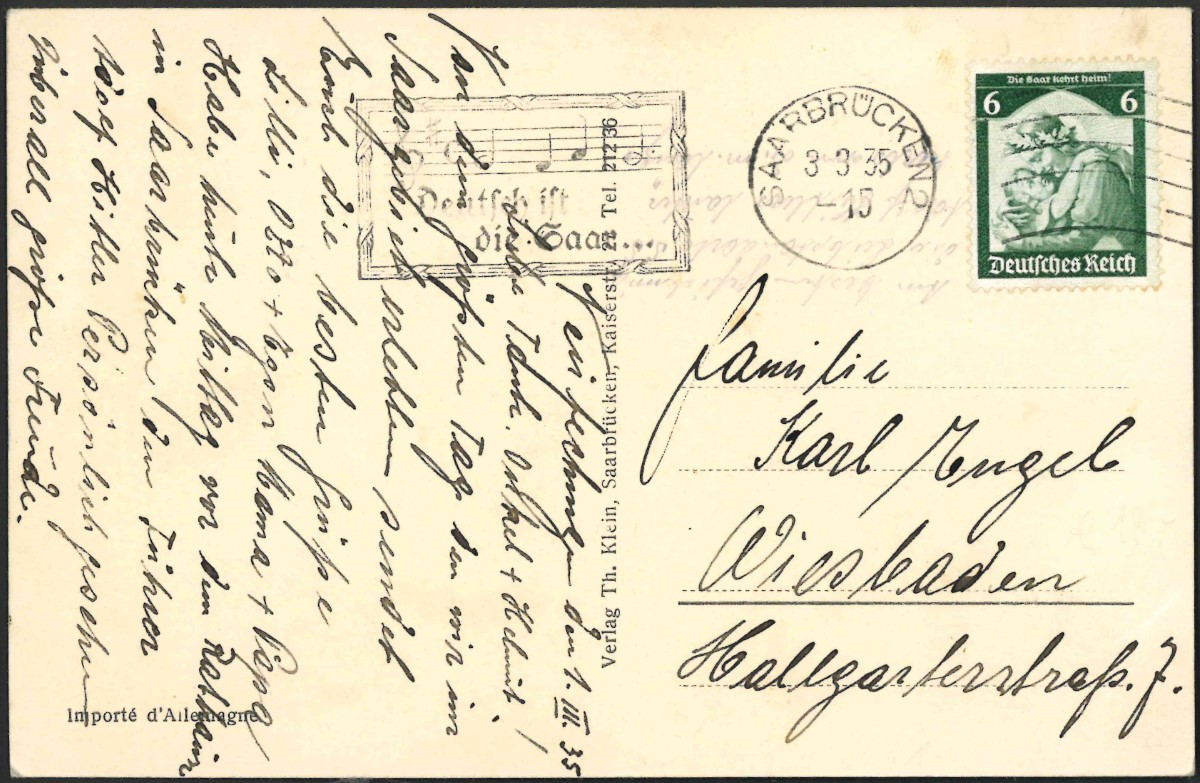 den 1. III. 35
Liebe Tante, Onkel + Helmut!
Von dem größten Tag den wir im
Saargebiet erlebten sendet
Euch die besten Grüße
Lilli, Otto + Egon Mama + Papa
Habe heute Mittag vor dem Rathaus
in Saarbrücken den Führer
Adolf Hitler Persönlich gesehen
überall große Freude.
Importé d'Allemagne
Deutsch ist
die Saar...
Verlag Th. Klein, Saarbrücken, Kaiserstr. 22 Tel. 21236
SAARBRÜCKEN 2
3 3 35
Die Saar kehrt heim!
6 6
Deutsches Reich
Familie
Karl Engel
Wiesbaden
Hallgarterstraß. 7.